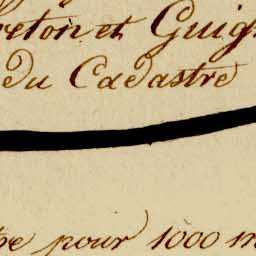 reton et Guig
du Cadastre
re pour 1000 m